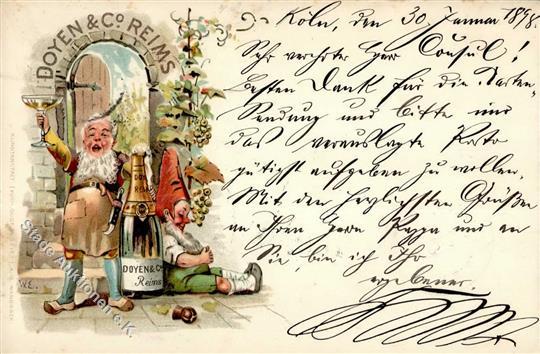 DOYEN & Cº REIMS
DOYEN & Cº
Reims
W.E.
Köln, den 30 Januar 1898.
Sehr verehrter Herr Consul!
Besten Dank für die Karten-
Sendung und bitte mir
das verauslagte Porto
gütigst aufgeben zu wollen.
Mit den herzlichsten Grüßen
an Ihren Herrn Pappa und an
Sie, bin ich Ihr
ergebener
Stade Auktionen e.K.